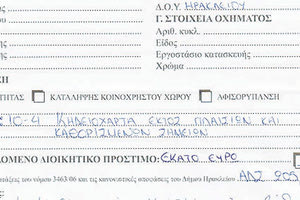 Δ.Ο.Υ. ΗΡΑΚΛΕΙΟΥ
ης
Γ. ΣΤΟΙΧΕΙΑ ΟΧΗΜΑΤΟΣ
Αριθ. κυκλ.
Είδος
Εργοστάσιο κατασκευής
Χρώμα
ΣΗ
ΤΗΤΑΣ ΚΑΤΑΛΗΨΗΣ ΚΟΙΝΟΧΡΗΣΤΟΥ ΧΩΡΟΥ ΑΦΙΣΟΡΥΠΑΝΣΗ
10-4 ΕΚΤΟΣ ΠΛΑΙΣΙΩΝ ΚΑΙ
ΚΑΘΟΡΙΣΜΕΝΩΝ ΣΗΜΕΙΩΝ
ΛΟΜΕΝΟ ΔΙΟΙΚΗΤΙΚΟ ΠΡΟΣΤΙΜΟ: ΕΚΑΤΟ ΕΥΡΩ
του νόμου 3463/06 και τις κανονιστικές αποφάσεις του Δήμου Ηρακλείου